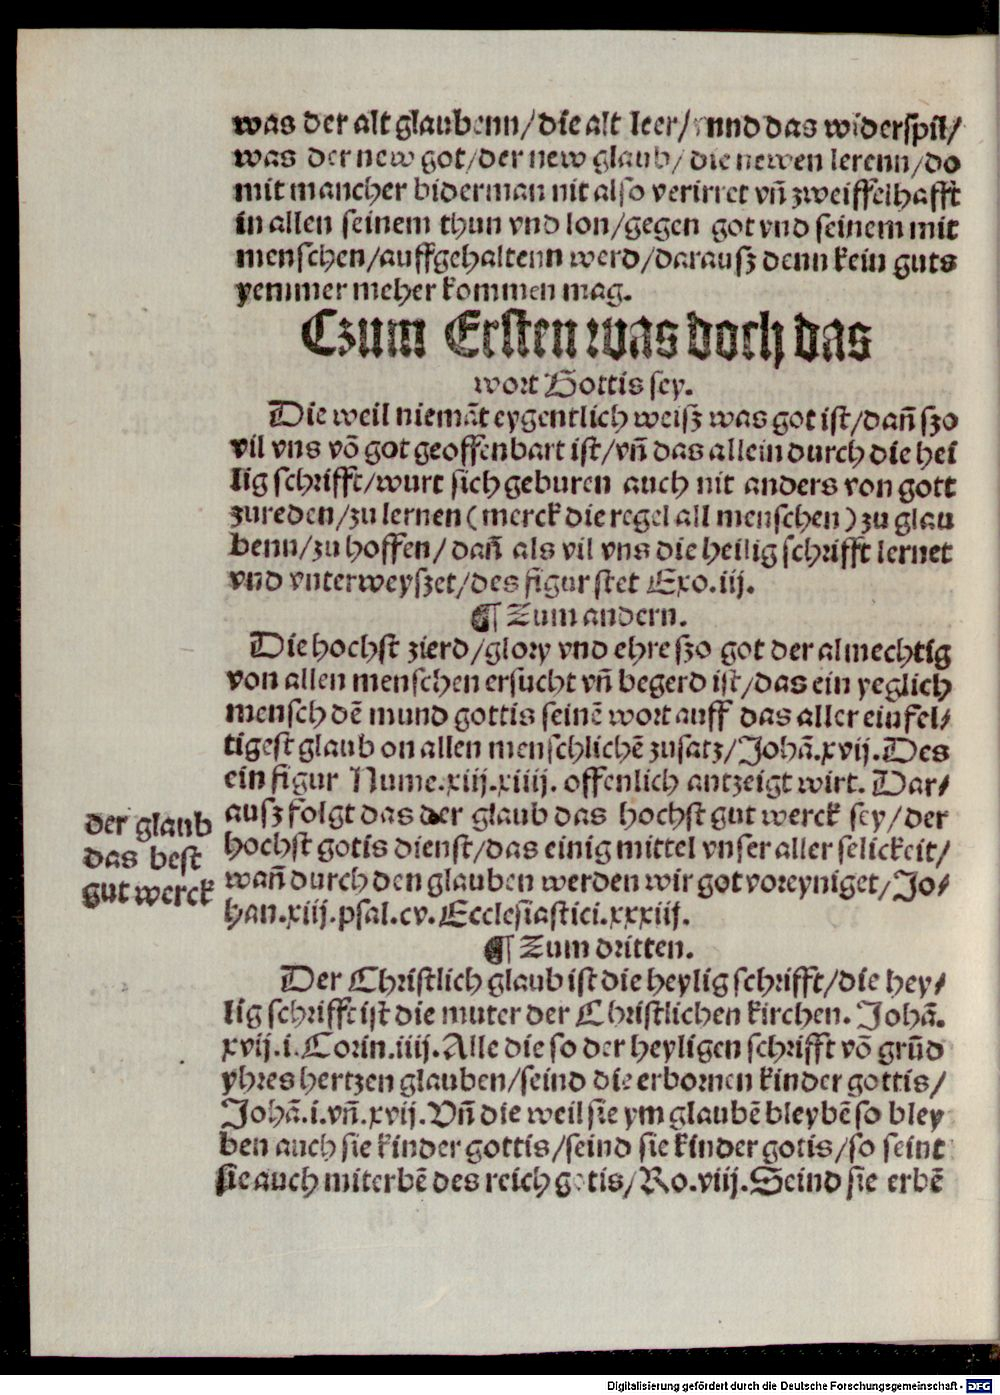 was der alt glaubenn/die alt leer/ unnd das widerspil/
was der new got/der new glaub/ die newen lerenn/do
mit mancher biderman nit also verirret vñ zweiffelhafft
in allen seinem thun vnd lon/gegen got vnd seinem mit
menschen/auffgehaltenn werd/darausz denn kein guts
yemmer meher kommen mag.
Czum Ersten was doch das
wort Gottis sey.
Die weil niemãt eygentlich weisz was got ist/dañ szo
vil vns võ got geoffenbart ist/vñ das allein durch die hei
lig schrifft/wurt sich geburen auch nit anders von gott
zureden/zu lernen (merck die regel all menschen) zu glau
benn/zu hoffen/ dañ als vil vns die heilig schrifft lernet
vnd vnterweyszet/des figur stet Exo.iij.
¶ Zum andern.
Die hochst zierd/glory vnd ehre szo got der almechtig
von allen menschen ersucht vñ begerd ist/das ein yeglich
mensch dẽ mund gottis seinẽ wort auff das aller einfel/
tigest glaub on allen menschlichẽ zusatz/Johã.xvij.Des
ein figur Nume.xiij.xiiij. offenlich antzeigt wirt. Dar/
ausz folgt das der glaub das hochst gut werck sey/der
hochst gotis dienst/das einig mittel vnser aller selickeit/
wañ durch den glauben werden wir got voreyniget/Jo/
han.xiij.psal.cv.Ecclesiastici.xxxiij.
der glaub
das best
gut werck
¶ Zum dritten.
Der Christlich glaub ist die heylig schrifft/die hey/
lig schrifft ist die muter der Christlichen kirchen. Johã.
xvij.i.Corin.iiij.Alle die so der heyligen schrifft võ grũd
yhres hertzen glauben/seind die erbornen kinder gottis/
Johã.i.vñ.xvij.Vñ die weil sie ym glaubẽ bleybẽ so bley
ben auch sie kinder gottis/seind sie kinder gotis/so seint
sie auch miterbẽ des reich gotis/Ro.viij.Seind sie erbẽ
Digitalisierung gefördert durch die Deutsche Forschungsgemeinschaft - DFG